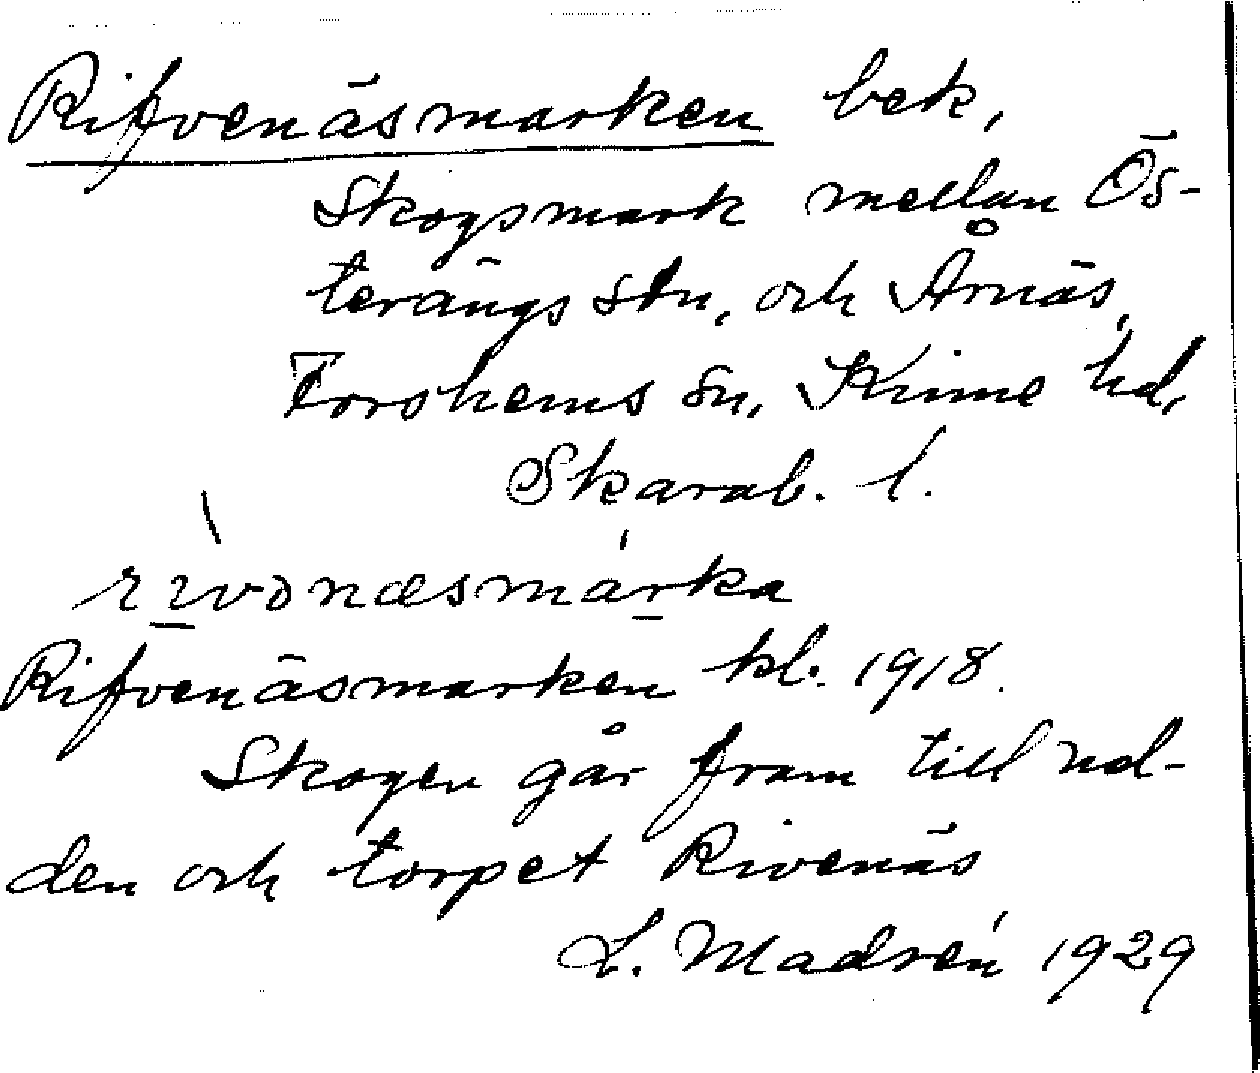 Rifvenäsmarken bek,
Skogsmark mellan Ös-
terängs stn, och Årnäs,
Forshems sn, Kinne hd,
Skarab. l.
rivənæsmárka
Rifvenäsmarken kl. 1918.
Skogen går fram till ud-
den och torpet Rivenäs
L. Madrén 1929